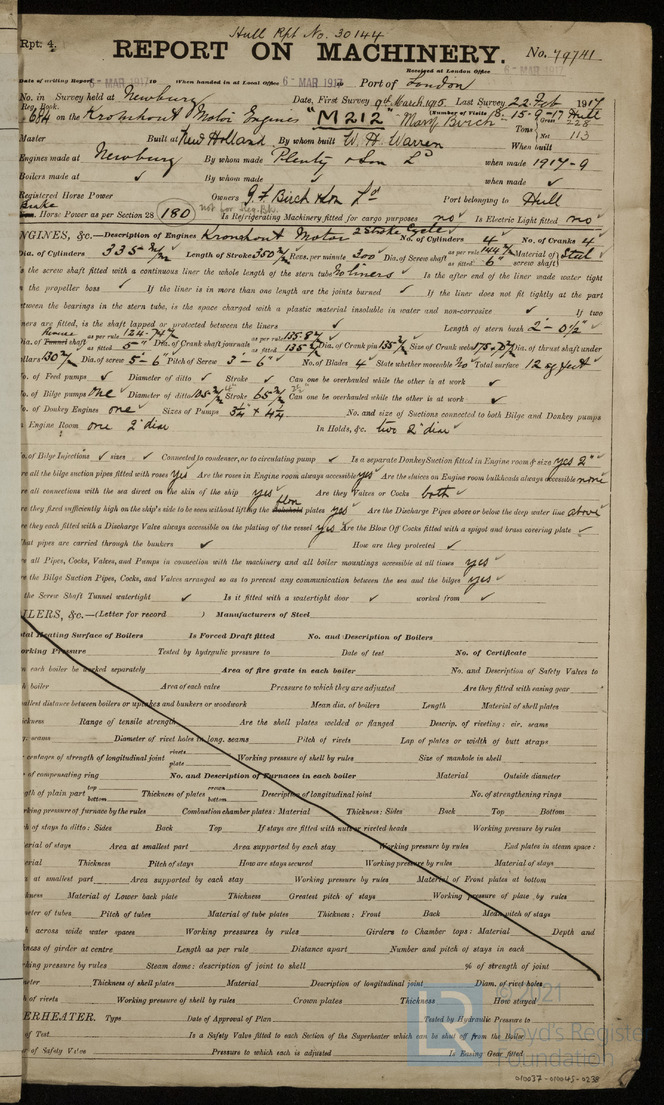 Hull Rpt No. 30144
Rpt: 4.
REPORT ON MACHINERY. No. 79741
Received at London Office
Date of writing Report 6-MAR 1917 19 When handed in at Local Office 6-MAR 1917 Port of London
No. in Survey held at Newbury Date, First Survey 9th March 1915 Last Survey 22 Feb 1917
Reg. Book. (Number of Visits
684 on the Kromhout Motor Engines "M212" - Mary Birch 15-9-17 Hull
Tons Gross 228
Net 113
Master Built at New Holland By whom built W. H. Warren When built
Engines made at Newbury By whom made Plenty & Son Ld when made 1917-9
Boilers made at ✓ By whom made ✓ when made ✓
Registered Horse Power Owners G. F. Birch & Son Ld Port belonging to Hull
Brake Horse Power as per Section 28 180 not for Reg. Bk. Is Refrigerating Machinery fitted for cargo purposes no Is Electric Light fitted no
NGINES, &c.—Description of Engines Kromhout Motor 2 Stroke Cycle No. of Cylinders 4 No. of Cranks 4
Dia. of Cylinders 335 m/m Length of Stroke 350 m/m Revs. per minute 300 Dia. of Screw shaft as per rule 144 as fitted 6" Material of screw shaft Steel
is the screw shaft fitted with a continuous liner the whole length of the stern tube No liners Is the after end of the liner made water tight
in the propeller boss ✓ If the liner is in more than one length are the joints burned ✓ If the liner does not fit tightly at the part
between the bearings in the stern tube, is the space charged with a plastic material insoluble in water and non-corrosive ✓ If two
ners are fitted, is the shaft lapped or protected between the liners ✓ Length of stern bush 2'-0½"
Dia. of Tunnel shaft as per rule 124.74 as fitted 5" Dia. of Crank shaft journals as per rule 135.8 as fitted 135 Dia. of Crank pin 135 Size of Crank webs 175 Dia. of thrust shaft under
ollars 130 Dia. of screw 5'-6" Pitch of Screw 3'-6" No. of Blades 4 State whether moveable No Total surface 12 sq feet
No. of Feed pumps ✓ Diameter of ditto ✓ Stroke ✓ Can one be overhauled while the other is at work ✓
No. of Bilge pumps One Diameter of ditto 105 Stroke 65 Can one be overhauled while the other is at work ✓
No. of Donkey Engines one Sizes of Pumps 3¼ + 4½ No. and size of Suctions connected to both Bilge and Donkey pumps
n Engine Room one 2" dia In Holds, &c. two 2" dia
No. of Bilge Injections ✓ sizes ✓ Connected to condenser, or to circulating pump ✓ Is a separate Donkey Suction fitted in Engine room & size yes 2"
re all the bilge suction pipes fitted with roses Yes Are the roses in Engine room always accessible yes Are the sluices on Engine room bulkheads always accessible none
re all connections with the sea direct on the skin of the ship yes Are they Valves or Cocks both
re they fixed sufficiently high on the ship's side to be seen without lifting the floor plates yes Are the Discharge Pipes above or below the deep water line above
re they each fitted with a Discharge Valve always accessible on the plating of the vessel yes Are the Blow Off Cocks fitted with a spigot and brass covering plate
hat pipes are carried through the bunkers ✓ How are they protected ✓
re all Pipes, Cocks, Valves, and Pumps in connection with the machinery and all boiler mountings accessible at all times yes
re the Bilge Suction Pipes, Cocks, and Valves arranged so as to prevent any communication between the sea and the bilges yes
the Screw Shaft Tunnel watertight ✓ Is it fitted with a watertight door ✓ worked from ✓
ILERS, &c.—(Letter for record ) Manufacturers of Steel
tal Heating Surface of Boilers Is Forced Draft fitted No. and Description of Boilers
orking Pressure Tested by hydraulic pressure to Date of test No. of Certificate
n each boiler be worked separately Area of fire grate in each boiler No. and Description of Safety Valves to
h boiler Area of each valve Pressure to which they are adjusted Are they fitted with easing gear
allest distance between boilers or uptakes and bunkers or woodwork Mean dia. of boilers Length Material of shell plates
ickness Range of tensile strength Are the shell plates welded or flanged Descrip. of riveting: cir. seams
g. seams Diameter of rivet holes in long. seams Pitch of rivets Lap of plates or width of butt straps
centages of strength of longitudinal joint rivets plate Working pressure of shell by rules Size of manhole in shell
e of compensating ring No. and Description of Furnaces in each boiler Material Outside diameter
gth of plain part top bottom Thickness of plates crown bottom Description of longitudinal joint No. of strengthening rings
rking pressure of furnace by the rules Combustion chamber plates: Material Thickness: Sides Back Top Bottom
ch of stays to ditto: Sides Back Top If stays are fitted with nuts or riveted heads Working pressure by rules
aterial of stays Area at smallest part Area supported by each stay Working pressure by rules End plates in steam space:
erial Thickness Pitch of stays How are stays secured Working pressure by rules Material of stays
a at smallest part Area supported by each stay Working pressure by rules Material of Front plates at bottom
kness Material of Lower back plate Thickness Greatest pitch of stays Working pressure of plate by rules
meter of tubes Pitch of tubes Material of tube plates Thickness: Front Back Mean pitch of stays
h across wide water spaces Working pressures by rules Girders to Chamber tops: Material Depth and
kness of girder at centre Length as per rule Distance apart Number and pitch of stays in each
rking pressure by rules Steam dome: description of joint to shell % of strength of joint
meter Thickness of shell plates Material Description of longitudinal joint Diam. of rivet holes
h of rivets Working pressure of shell by rules Crown plates Thickness How stayed
ERHEATER. Type Date of Approval of Plan Tested by Hydraulic Pressure to
of Test Is a Safety Valve fitted to each Section of the Superheater which can be shut off from the Boiler
of Safety Valve Pressure to which each is adjusted Is Easing Gear fitted
© 2021
Lloyd's Register
Foundation
010037-010045-0238